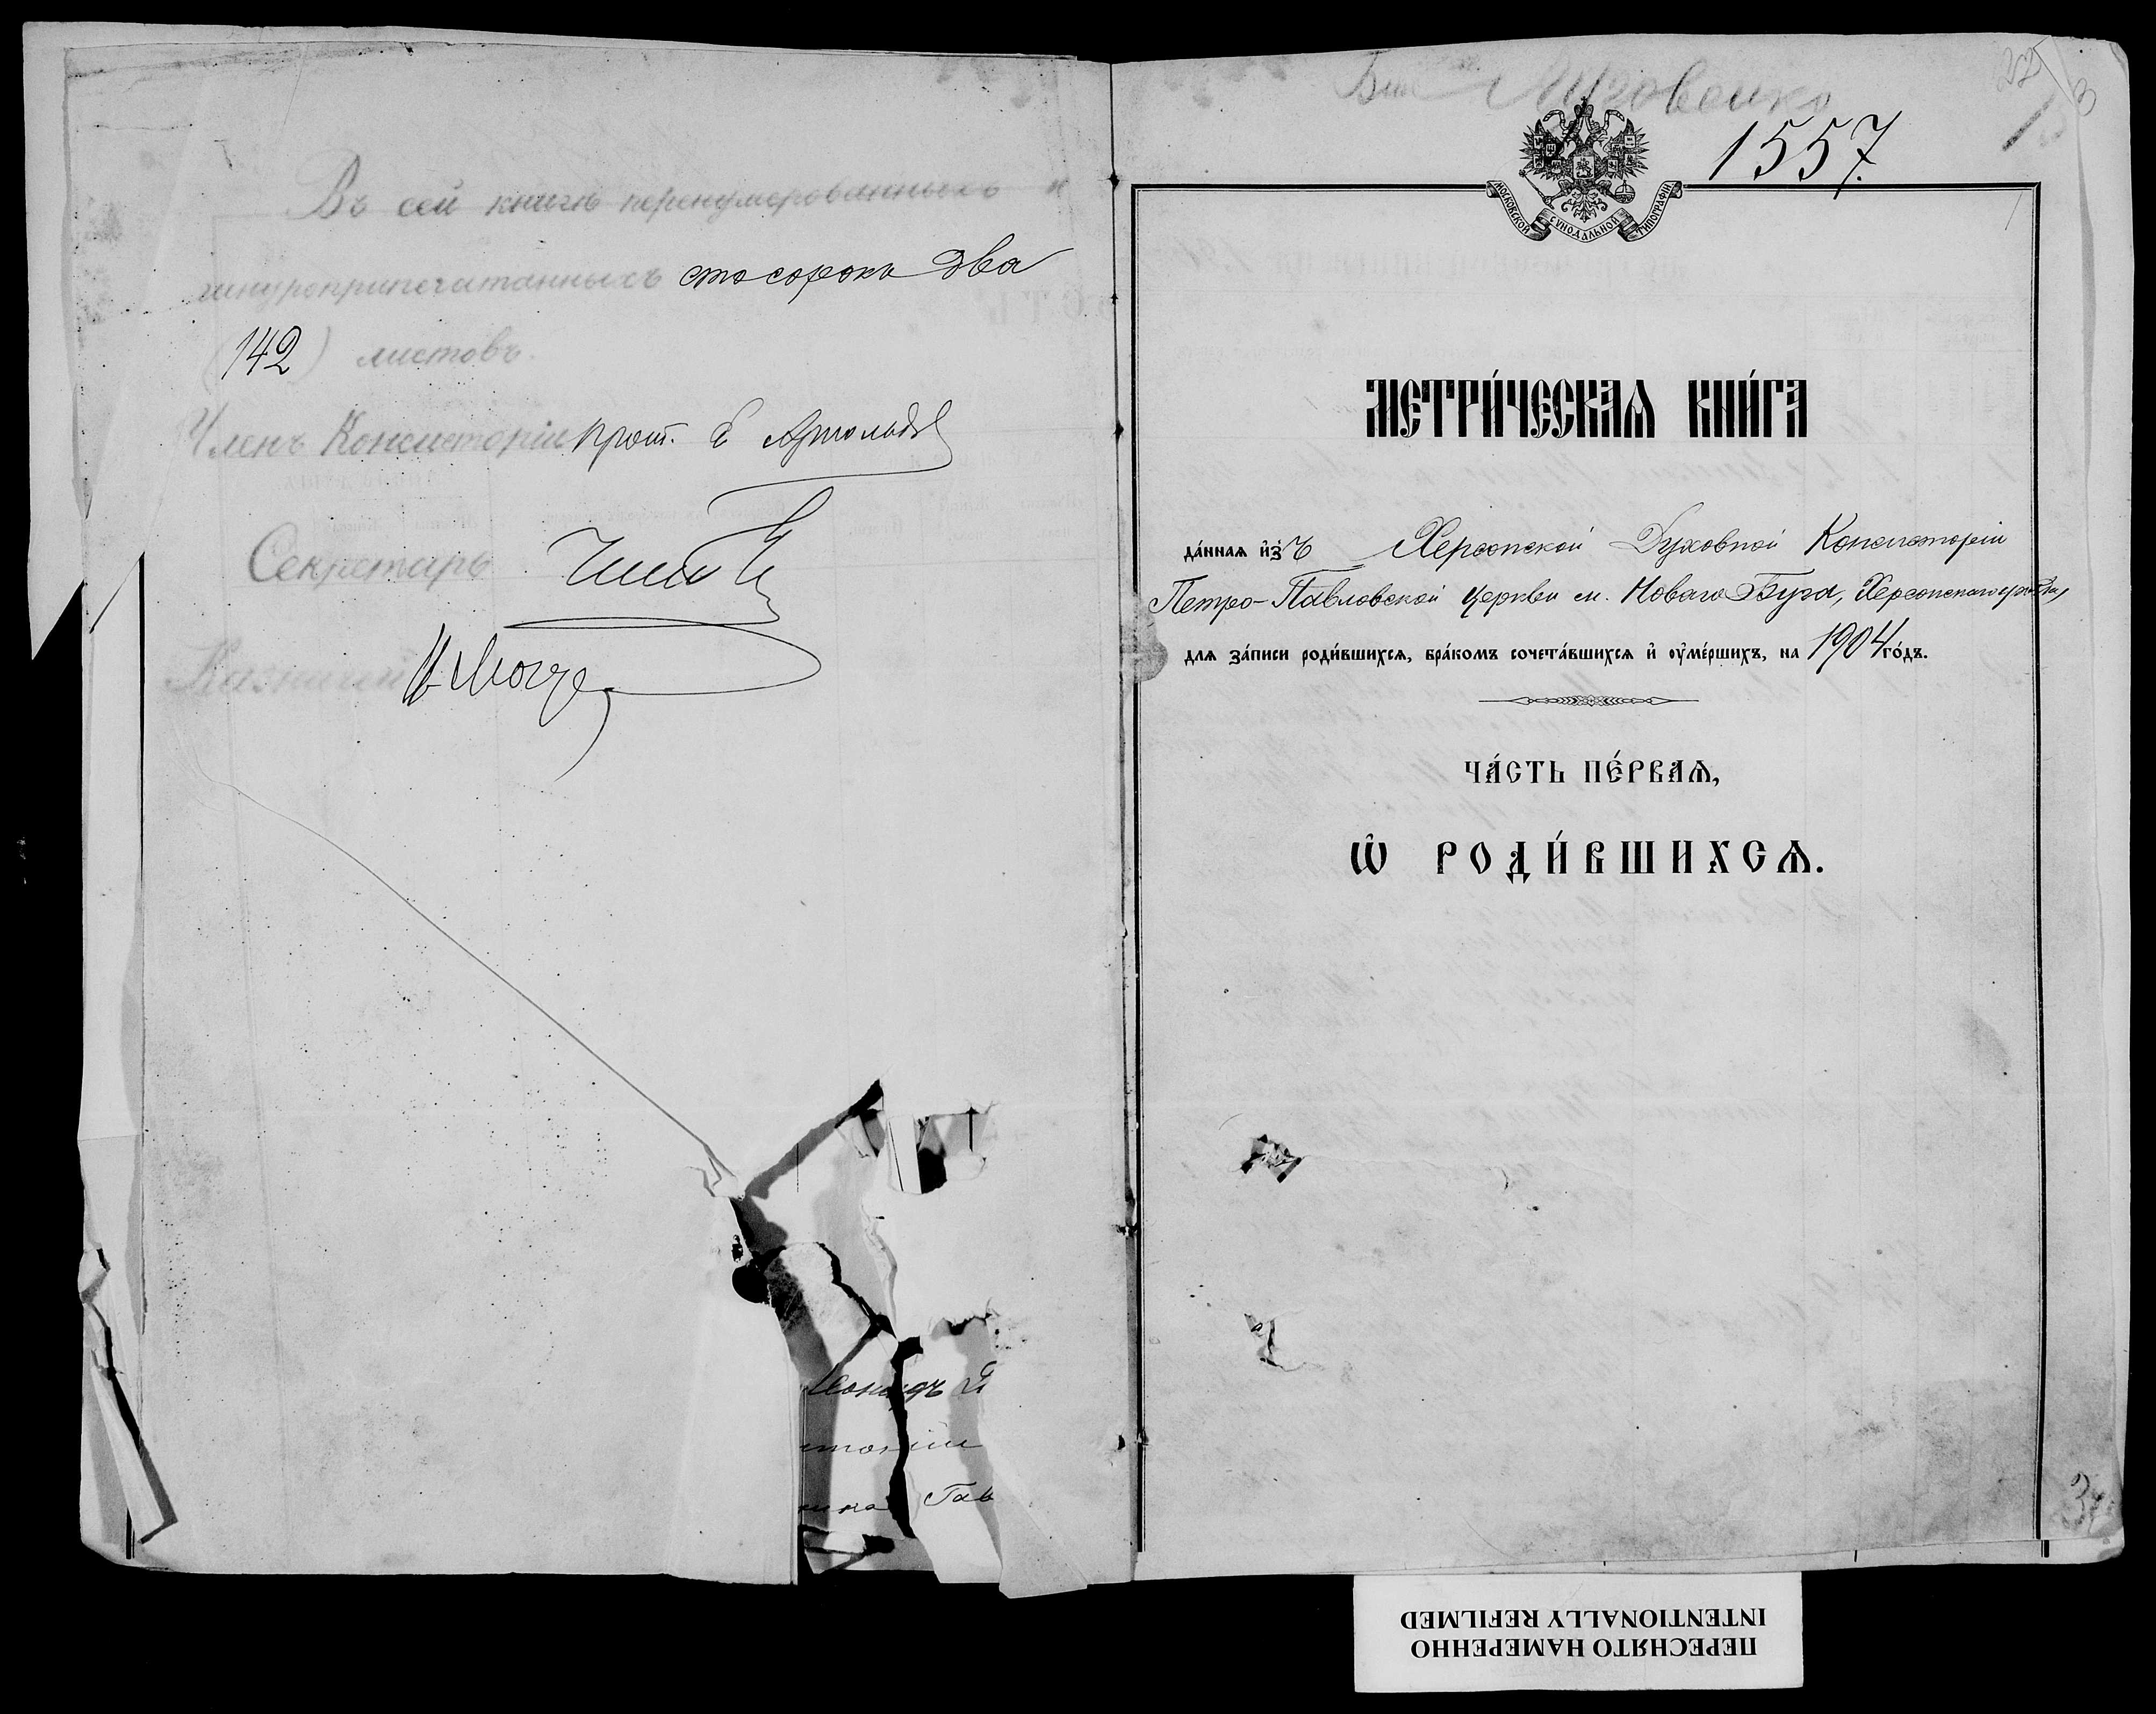 Въ сей книгѣ перенумерованныхъ и
шнуроприпечатанныхъ сто сорокъ два
(142) листовъ.
Членъ Консисторіи прот.
Секретарь
Казначей
1557.
МОСКОВСКОЙ СѴНОДАЛЬНОЙ ТИПОГРАФІИ
МЕТРИ́ЧЕСКАѦ КНИ́ГА
да́нная и҆зъ Херсонской Духовной Консисторіи
Петро-Павловской церкви м. Новаго Буга, Херсонскаго уѣзда,
для за́писи роди́вшихся, бра́комъ сочета́вшихся и҆ ᲂу҆ме́ршихъ, на 1904 го́дъ.
ЧА́СТЬ ПЕ́РВАѦ,
Ѽ РОДИ́ВШИХСѦ.
Гав
3
ПЕРЕСНЯТО НАМЕРЕННО
INTENTIONALLY REFILMED